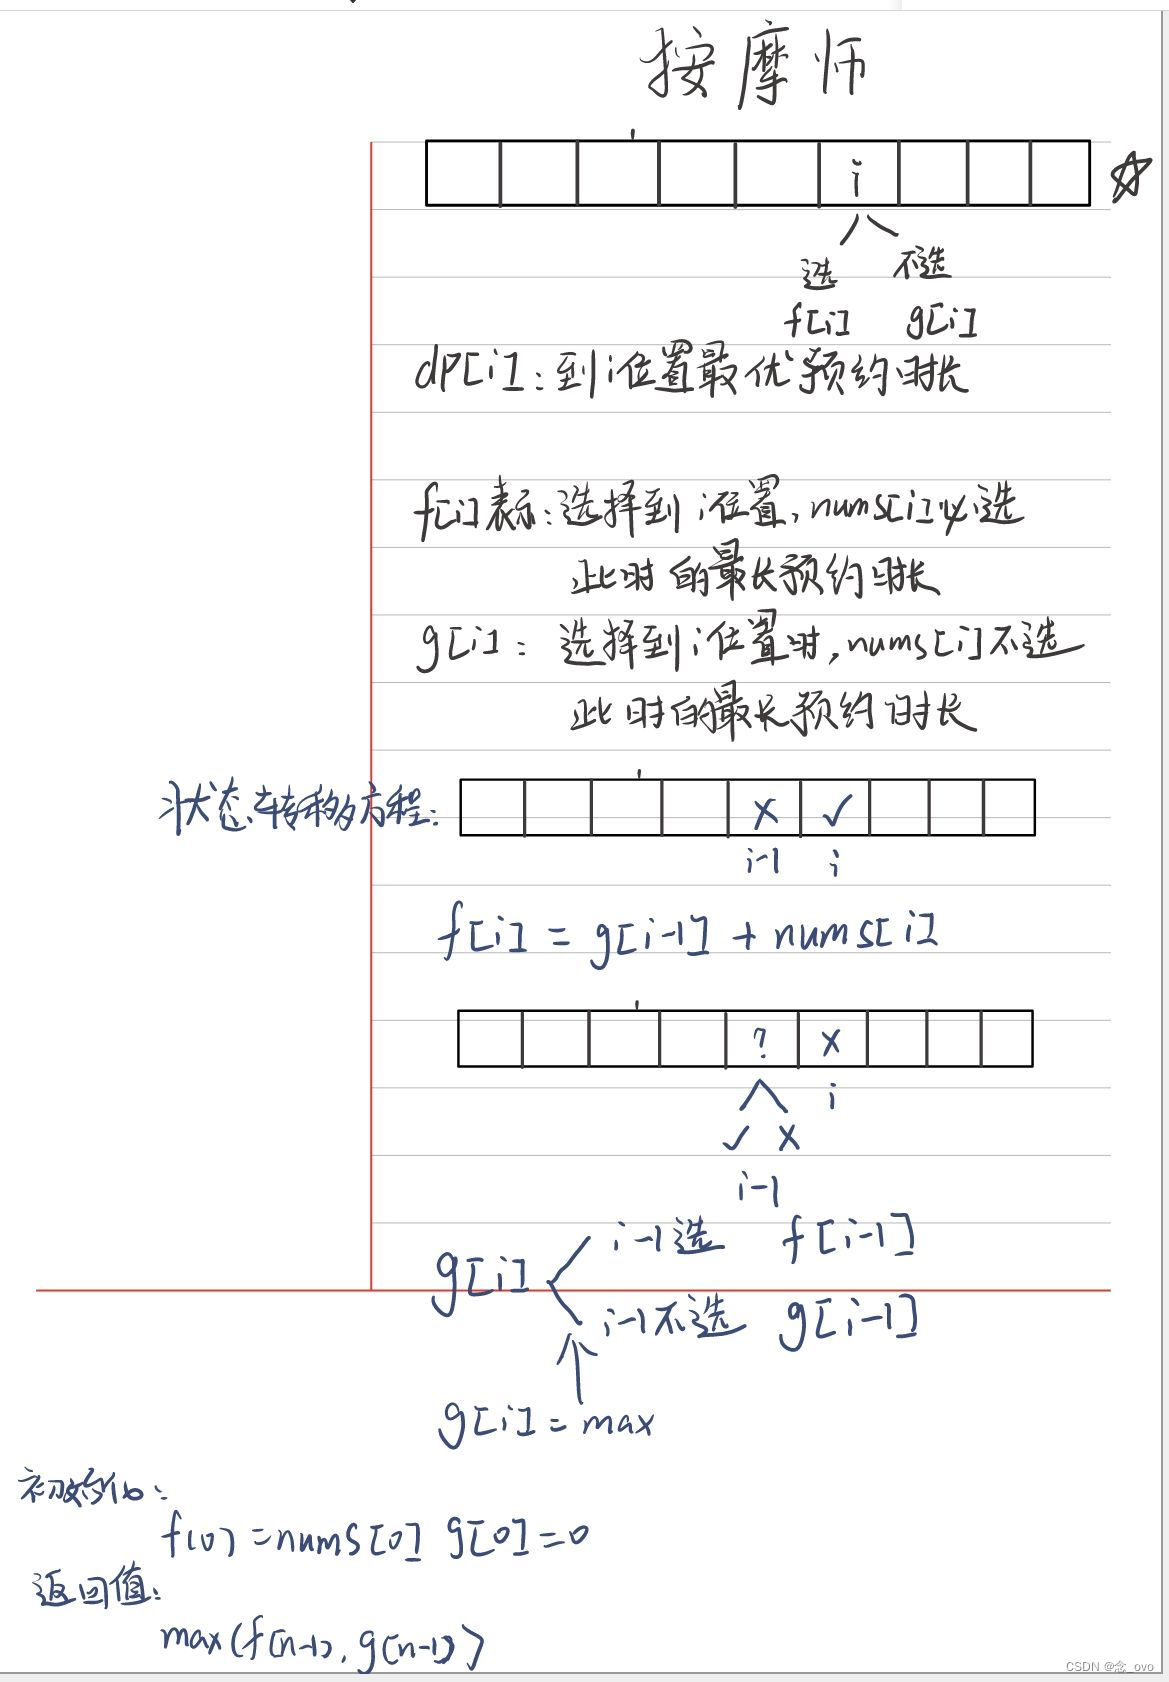 按摩师
i
选 不选
f[i] g[i]
dp[i]:到i位置最优预约时长
f[i]表示:选择到i位置,nums[i]必选
此时的最长预约时长
g[i]: 选择到i位置时,nums[i]不选
此时的最长预约时长
状态转移方程:
× ✓
i-1 i
f[i] = g[i-1] + nums[i]
? ×
i
✓ ×
i-1
i-1选 f[i-1]
g[i]
i-1不选 g[i-1]
g[i] = max
初始化:
f(0) = nums[0] g[0] = 0
返回值:
max(f[n-1], g[n-1])
CSDN @念_ovo